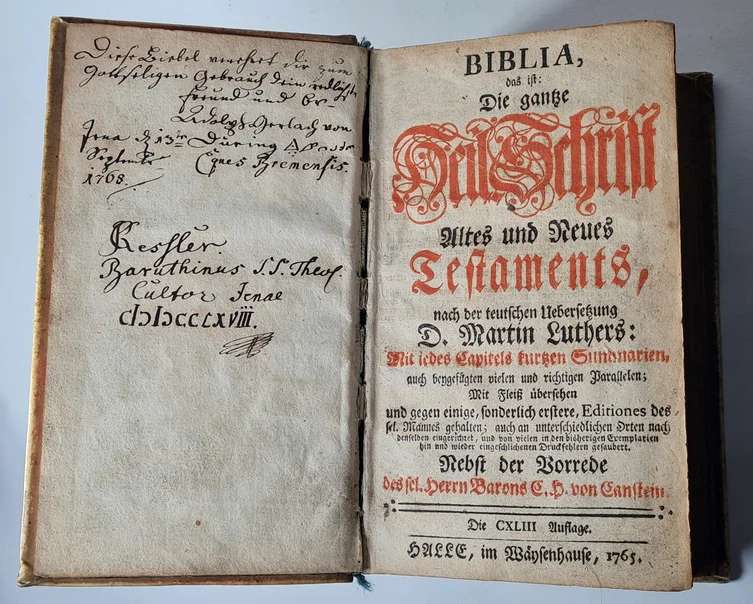 Diese Biebel verehret dir zum
Gottseligen Gebrauch dein redlichster
Freund und Br.
Adolph Gerlach von
Jena d 13ter During
September Eques Bremensis.
1768.
Kessler.
Baruthinus S.S. Theol.
Cultor Jenae
CIƆIƆCCLXVIII.
BIBLIA,
das ist:
Die gantze
Heil. Schrift
Altes und Neues
Testaments,
nach der teutschen Uebersetzung
D. Martin Luthers:
Mit jedes Capitels kurtzen Summarien,
auch beygefügten vielen und richtigen Parallelen;
Mit Fleiß übersehen
und gegen einige, sonderlich erstere, Editiones des
sel. Mannes gehalten; auch an unterschiedlichen Orten nach
denselben eingerichtet, und von vielen in den bisherigen Exemplarien
hin und wieder eingeschlichenen Druckfehlern gesaubert.
Nebst der Vorrede
des sel. Herrn Barons C. H. von Canstein.
Die CXLIII Auflage.
HALLE, im Wäysenhause, 1765.